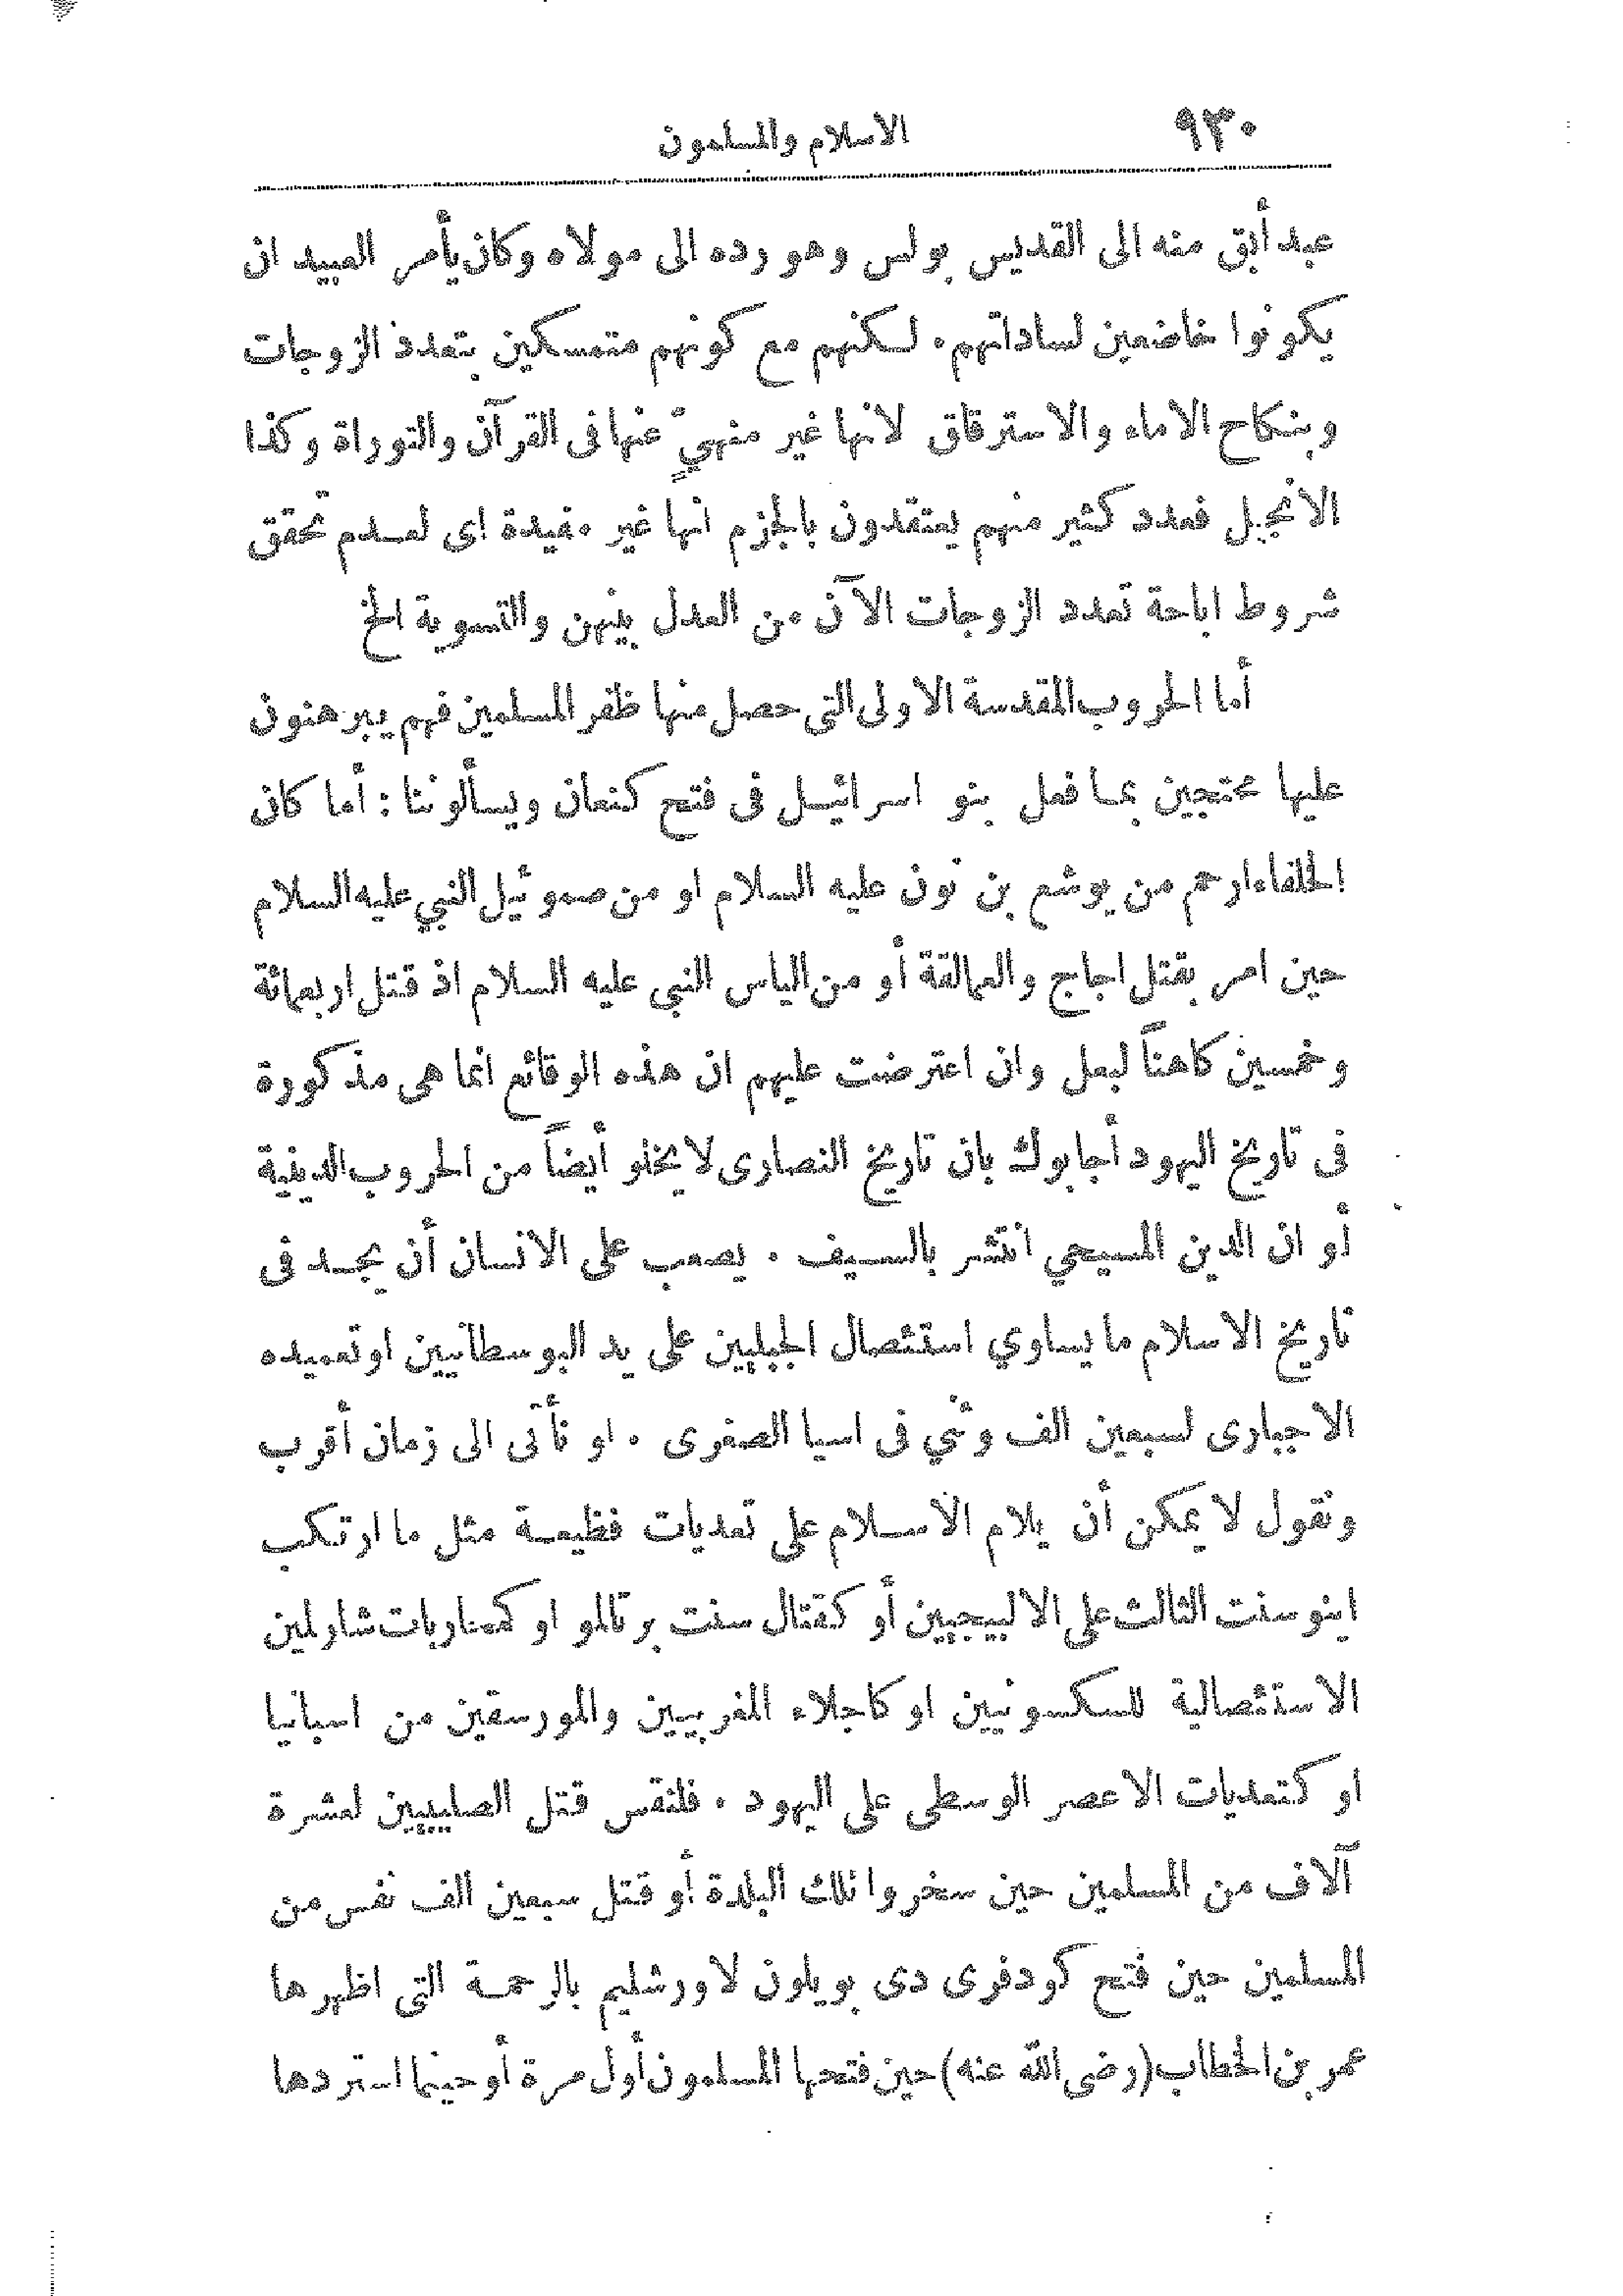 ٩٣٠ الاسلام والمسلمون
عبد أبق منه الى القديس بولس وهو رده الى مولاه وكان يأمر العبيد ان
يكونوا خاضعين لساداتهم. لكنهم مع كونهم متمسكين بتعدد الزوجات
وبنكاح الاماء والاسترقاق لانها غير منهيٍّ عنها فى القرآن والتوراة وكذا
الانجيل فعدد كثير منهم يعتقدون بالجزم انها غير مفيدة اى لعدم تحقق
شروط اباحة تعدد الزوجات الآن من العدل بينهن والتسوية الخ
أما الحروب المقدسة الاولى التى حصل منها ظفر المسلمين فهم يبرهنون
عليها محتجين بما فعل بنو اسرائيل فى فتح كنعان ويسألوننا : أما كان
الخلفاء ارحم من يوشع بن نون عليه السلام او من صموئيل النبي عليه السلام
حين امر بقتل اجاج والعمالقة أو من الياس النبى عليه السلام اذ قتل اربعمائة
وخمسين كاهناً لبعل وان اعترضت عليهم ان هذه الوقائع انما هى مذكورة
فى تاريخ اليهود أجابوك بان تاريخ النصارى لا يخلو أيضاً من الحروب الدينية
أو ان الدين المسيحي انتشر بالسيف . يصعب على الانسان أن يجد فى
تاريخ الاسلام ما يساوي استئصال الجبليين على يد البوسطانيين او تعميده
الاجبارى لسبعين الف وثني فى اسيا الصغرى . او نأتى الى زمان أقرب
ونقول لا يمكن أن يلام الاسلام على تعديات فظيعة مثل ما ارتكب
اينوسنت الثالث على الالبيجيين أو كقتال سنت برتالمو او كمحاربات شارلمين
الاستئصالية للسكسونيين او كاجلاء المغربيين والمورسقين من اسبانيا
او كتعديات الاعصر الوسطى على اليهود . فلنقس قتل الصليبيين لعشرة
آلاف من المسلمين حين سخروا تلك البلدة أو قتل سبعين الف نفس من
المسلمين حين فتح كودفرى دى بويلون لاورشليم بالرحمة التى اظهرها
عمر بن الخطاب (رضى الله عنه) حين فتحها المسلمون أول مرة أو حينما استردها